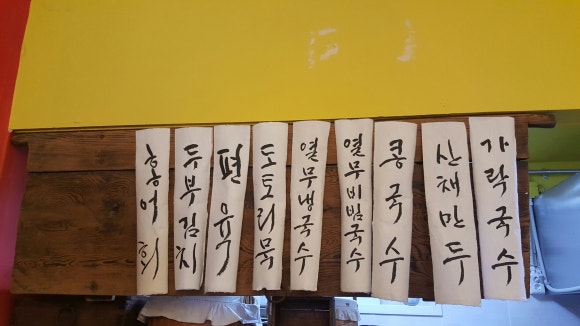 홍어회
두부김치
편육
도토리묵
열무냉국수
열무비빔국수
콩국수
산채만두
가락국수